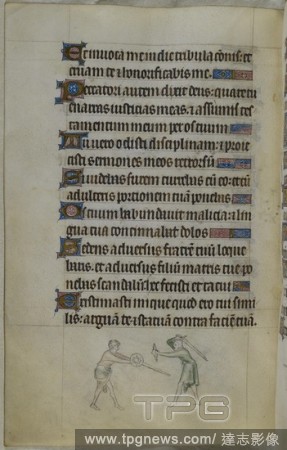 Et invoca me in die tribulac̄onis: et
eruam te ⁊ honorificabis me.
Peccatori autem dixit deus: quare tu
enarras iusticias meas: ⁊ assumis tes
tamentum meum per os tuum
Tu vero odisti disciplinam: ⁊ proie
cisti sermones meos retrorsū
Si videbas furem currebas cū eo: ⁊ cū
adulteris portionem tuā ponebas
Os tuum habundavit malicia: ⁊ lin
gua tua concinnabat dolos
Sedens adversus fratrē tuū loque
baris. et adversus filiū matris tue po
nebas scandalū: hec fecisti et tacui
Existimasti inique quod ero tui simi
lis: arguā te ⁊ statuam contra faciē tuā.
TPG
www.tpgnews.com / 達志影像